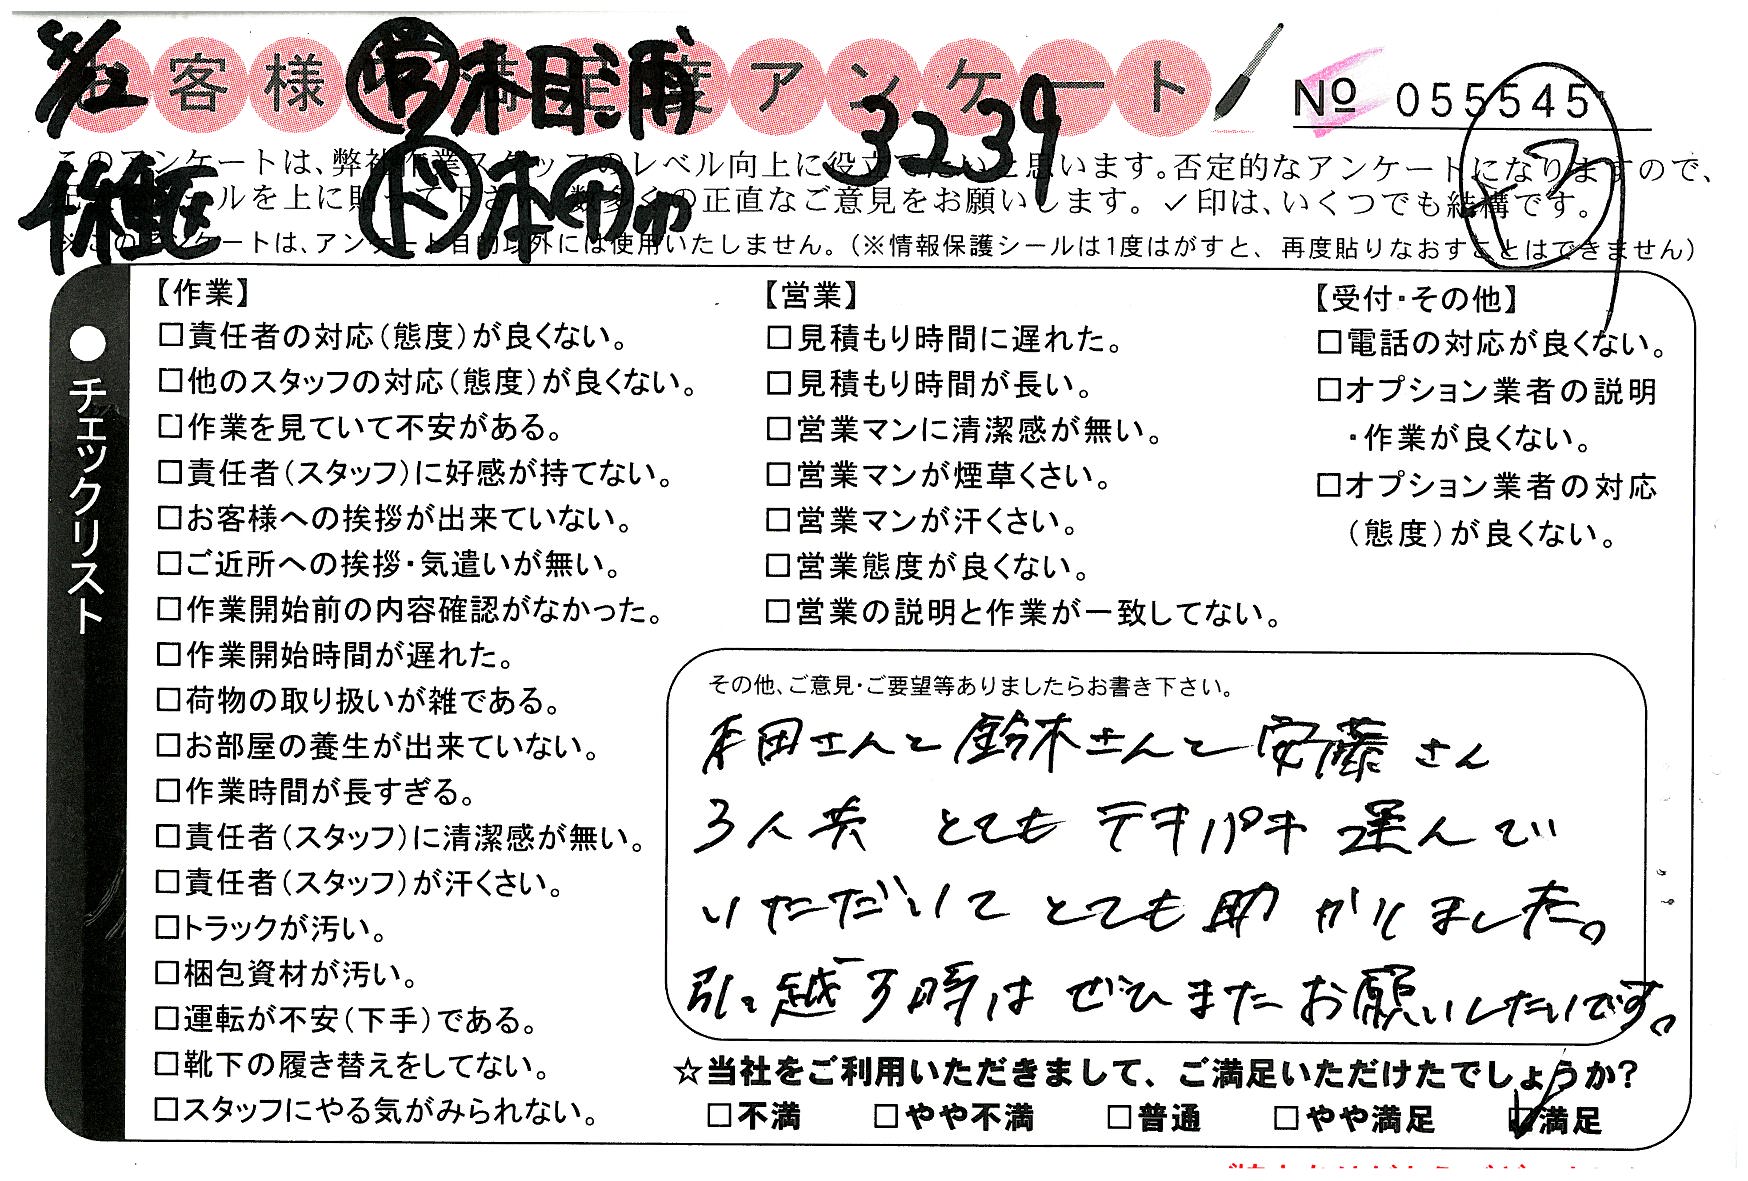 お客様満足度アンケート
3/2
営 相浦
3239
No 055545
このアンケートは、弊社作業スタッフのレベル向上に役立てたいと思います。否定的なアンケートになりますので、
シールを上に貼って下さい。数多くの正直なご意見をお願いします。✓印は、いくつでも結構です。
ド 本田
※このアンケートは、アンケート目的以外には使用いたしません。(※情報保護シールは1度はがすと、再度貼りなおすことはできません)
●チェックリスト
【作業】
□責任者の対応(態度)が良くない。
□他のスタッフの対応(態度)が良くない。
□作業を見ていて不安がある。
□責任者(スタッフ)に好感が持てない。
□お客様への挨拶が出来ていない。
□ご近所への挨拶・気遣いが無い。
□作業開始前の内容確認がなかった。
□作業開始時間が遅れた。
□荷物の取り扱いが雑である。
□お部屋の養生が出来ていない。
□作業時間が長すぎる。
□責任者(スタッフ)に清潔感が無い。
□責任者(スタッフ)が汗くさい。
□トラックが汚い。
□梱包資材が汚い。
□運転が不安(下手)である。
□靴下の履き替えをしてない。
□スタッフにやる気がみられない。
【営業】
□見積もり時間に遅れた。
□見積もり時間が長い。
□営業マンに清潔感が無い。
□営業マンが煙草くさい。
□営業マンが汗くさい。
□営業態度が良くない。
□営業の説明と作業が一致してない。
【受付・その他】
□電話の対応が良くない。
□オプション業者の説明
・作業が良くない。
□オプション業者の対応
(態度)が良くない。
その他、ご意見・ご要望等ありましたらお書き下さい。
本田さんと鈴木さんと安藤さん
3人共 とても テキパキ 運んで
いただいて とても助かりました。
引っ越す時は ぜひまたお願いしたいです。
☆当社をご利用いただきまして、ご満足いただけたでしょうか?
□不満 □やや不満 □普通 □やや満足 ☑満足